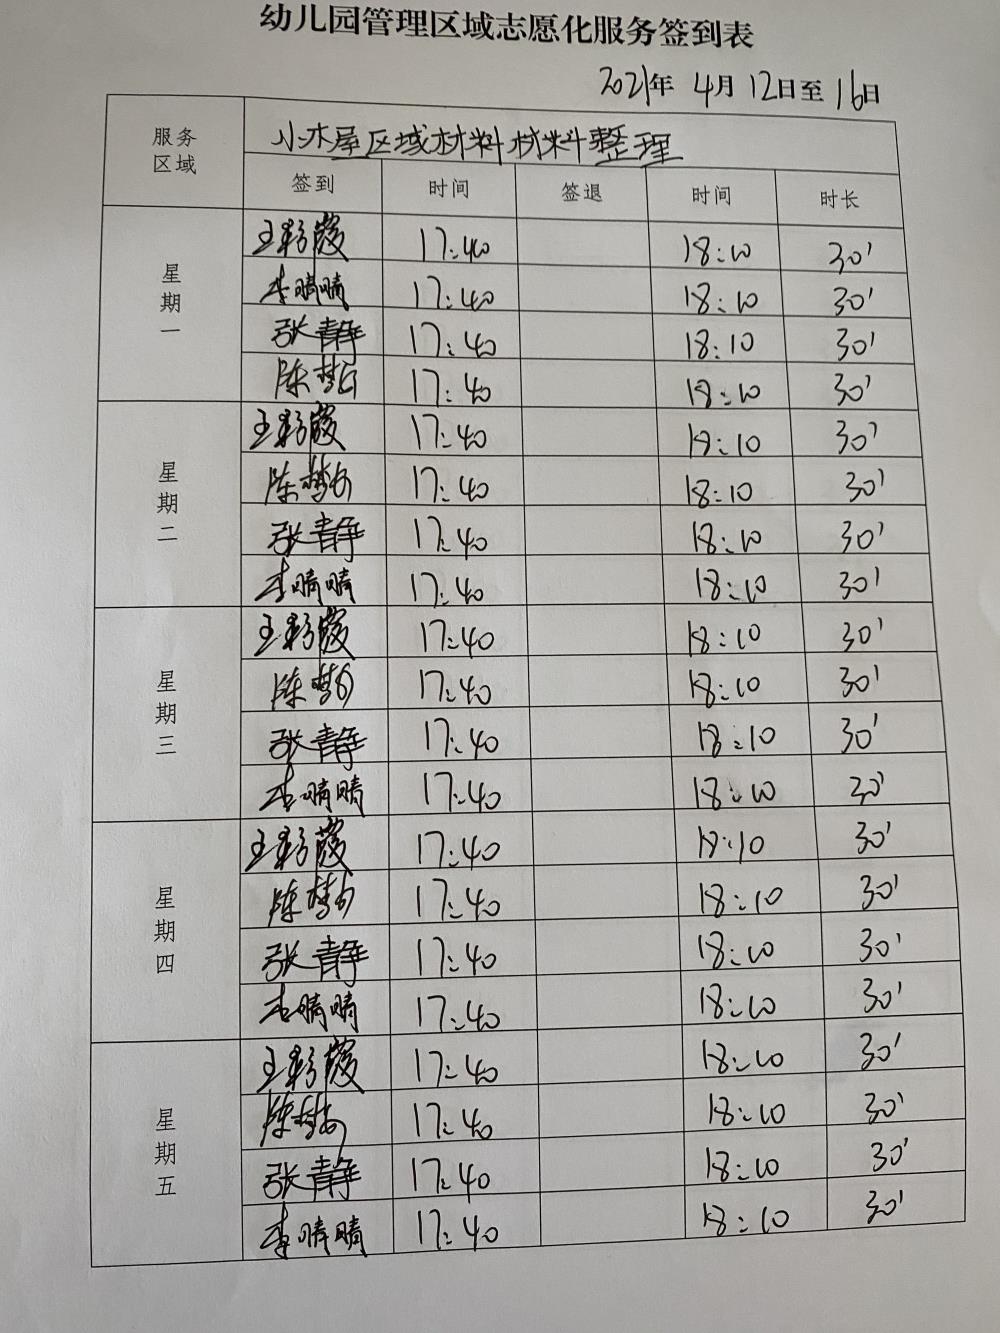 幼儿园管理区域志愿化服务签到表
2021年 4月 12日至 16日
服务区域 小木屋区域材料材料整理
签到 时间 签退 时间 时长
星期一
王彩霞 17:40 18:10 30'
李晴晴 17:40 18:10 30'
张静 17:40 18:10 30'
陈梦 17:40 18:10 30'
星期二
王彩霞 17:40 18:10 30'
陈梦 17:40 18:10 30'
张静 17:40 18:10 30'
李晴晴 17:40 18:10 30'
星期三
王彩霞 17:40 18:10 30'
陈梦 17:40 18:10 30'
张静 17:40 18:10 30'
李晴晴 17:40 18:10 30'
星期四
王彩霞 17:40 18:10 30'
陈梦 17:40 18:10 30'
张静 17:40 18:10 30'
李晴晴 17:40 18:10 30'
星期五
王彩霞 17:40 18:10 30'
陈梦 17:40 18:10 30'
张静 17:40 18:10 30'
李晴晴 17:40 18:10 30'